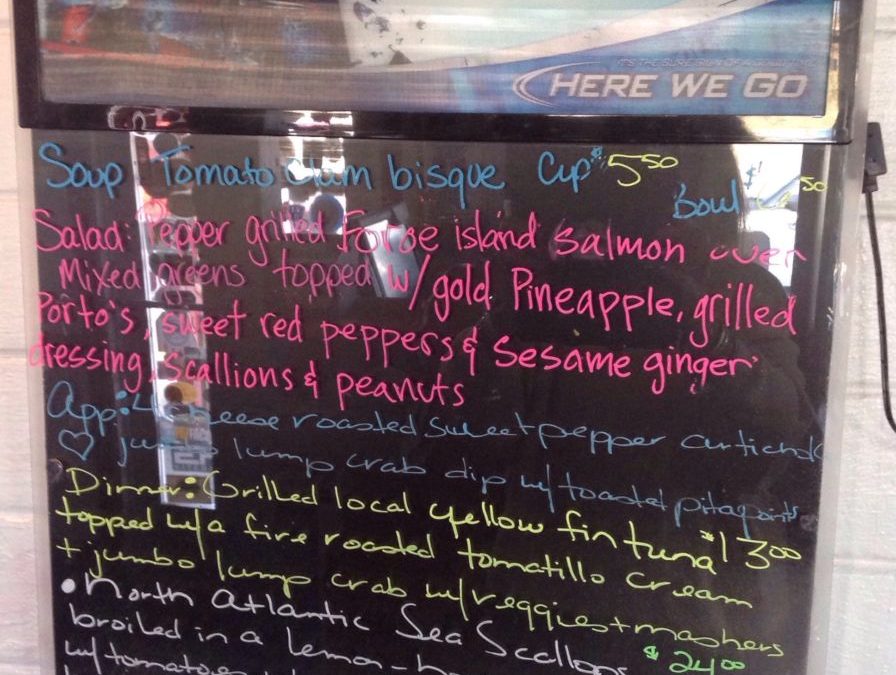 IT'S THE SURE SIGN OF A GOOD TIME
HERE WE GO
Soup Tomato Clam bisque Cup $5.50
Bowl 50
Salad: Pepper grilled Faroe island salmon over
Mixed greens topped w/ gold Pineapple, grilled
Porto's, sweet red peppers & sesame ginger
dressing, scallions & peanuts
App: 4 cheese roasted sweet pepper artichoke
♡ jumbo lump crab dip w/ toasted pita points
$13.00
Dinner: Grilled local yellow fin tuna
topped w/ a fire roasted tomatillo cream
+ jumbo lump crab w/ veggies + mashers
$24.00
• North Atlantic Sea Scallops
broiled in a lemon-
w/ tomatoes